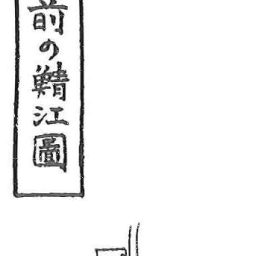 前の鯖江圖